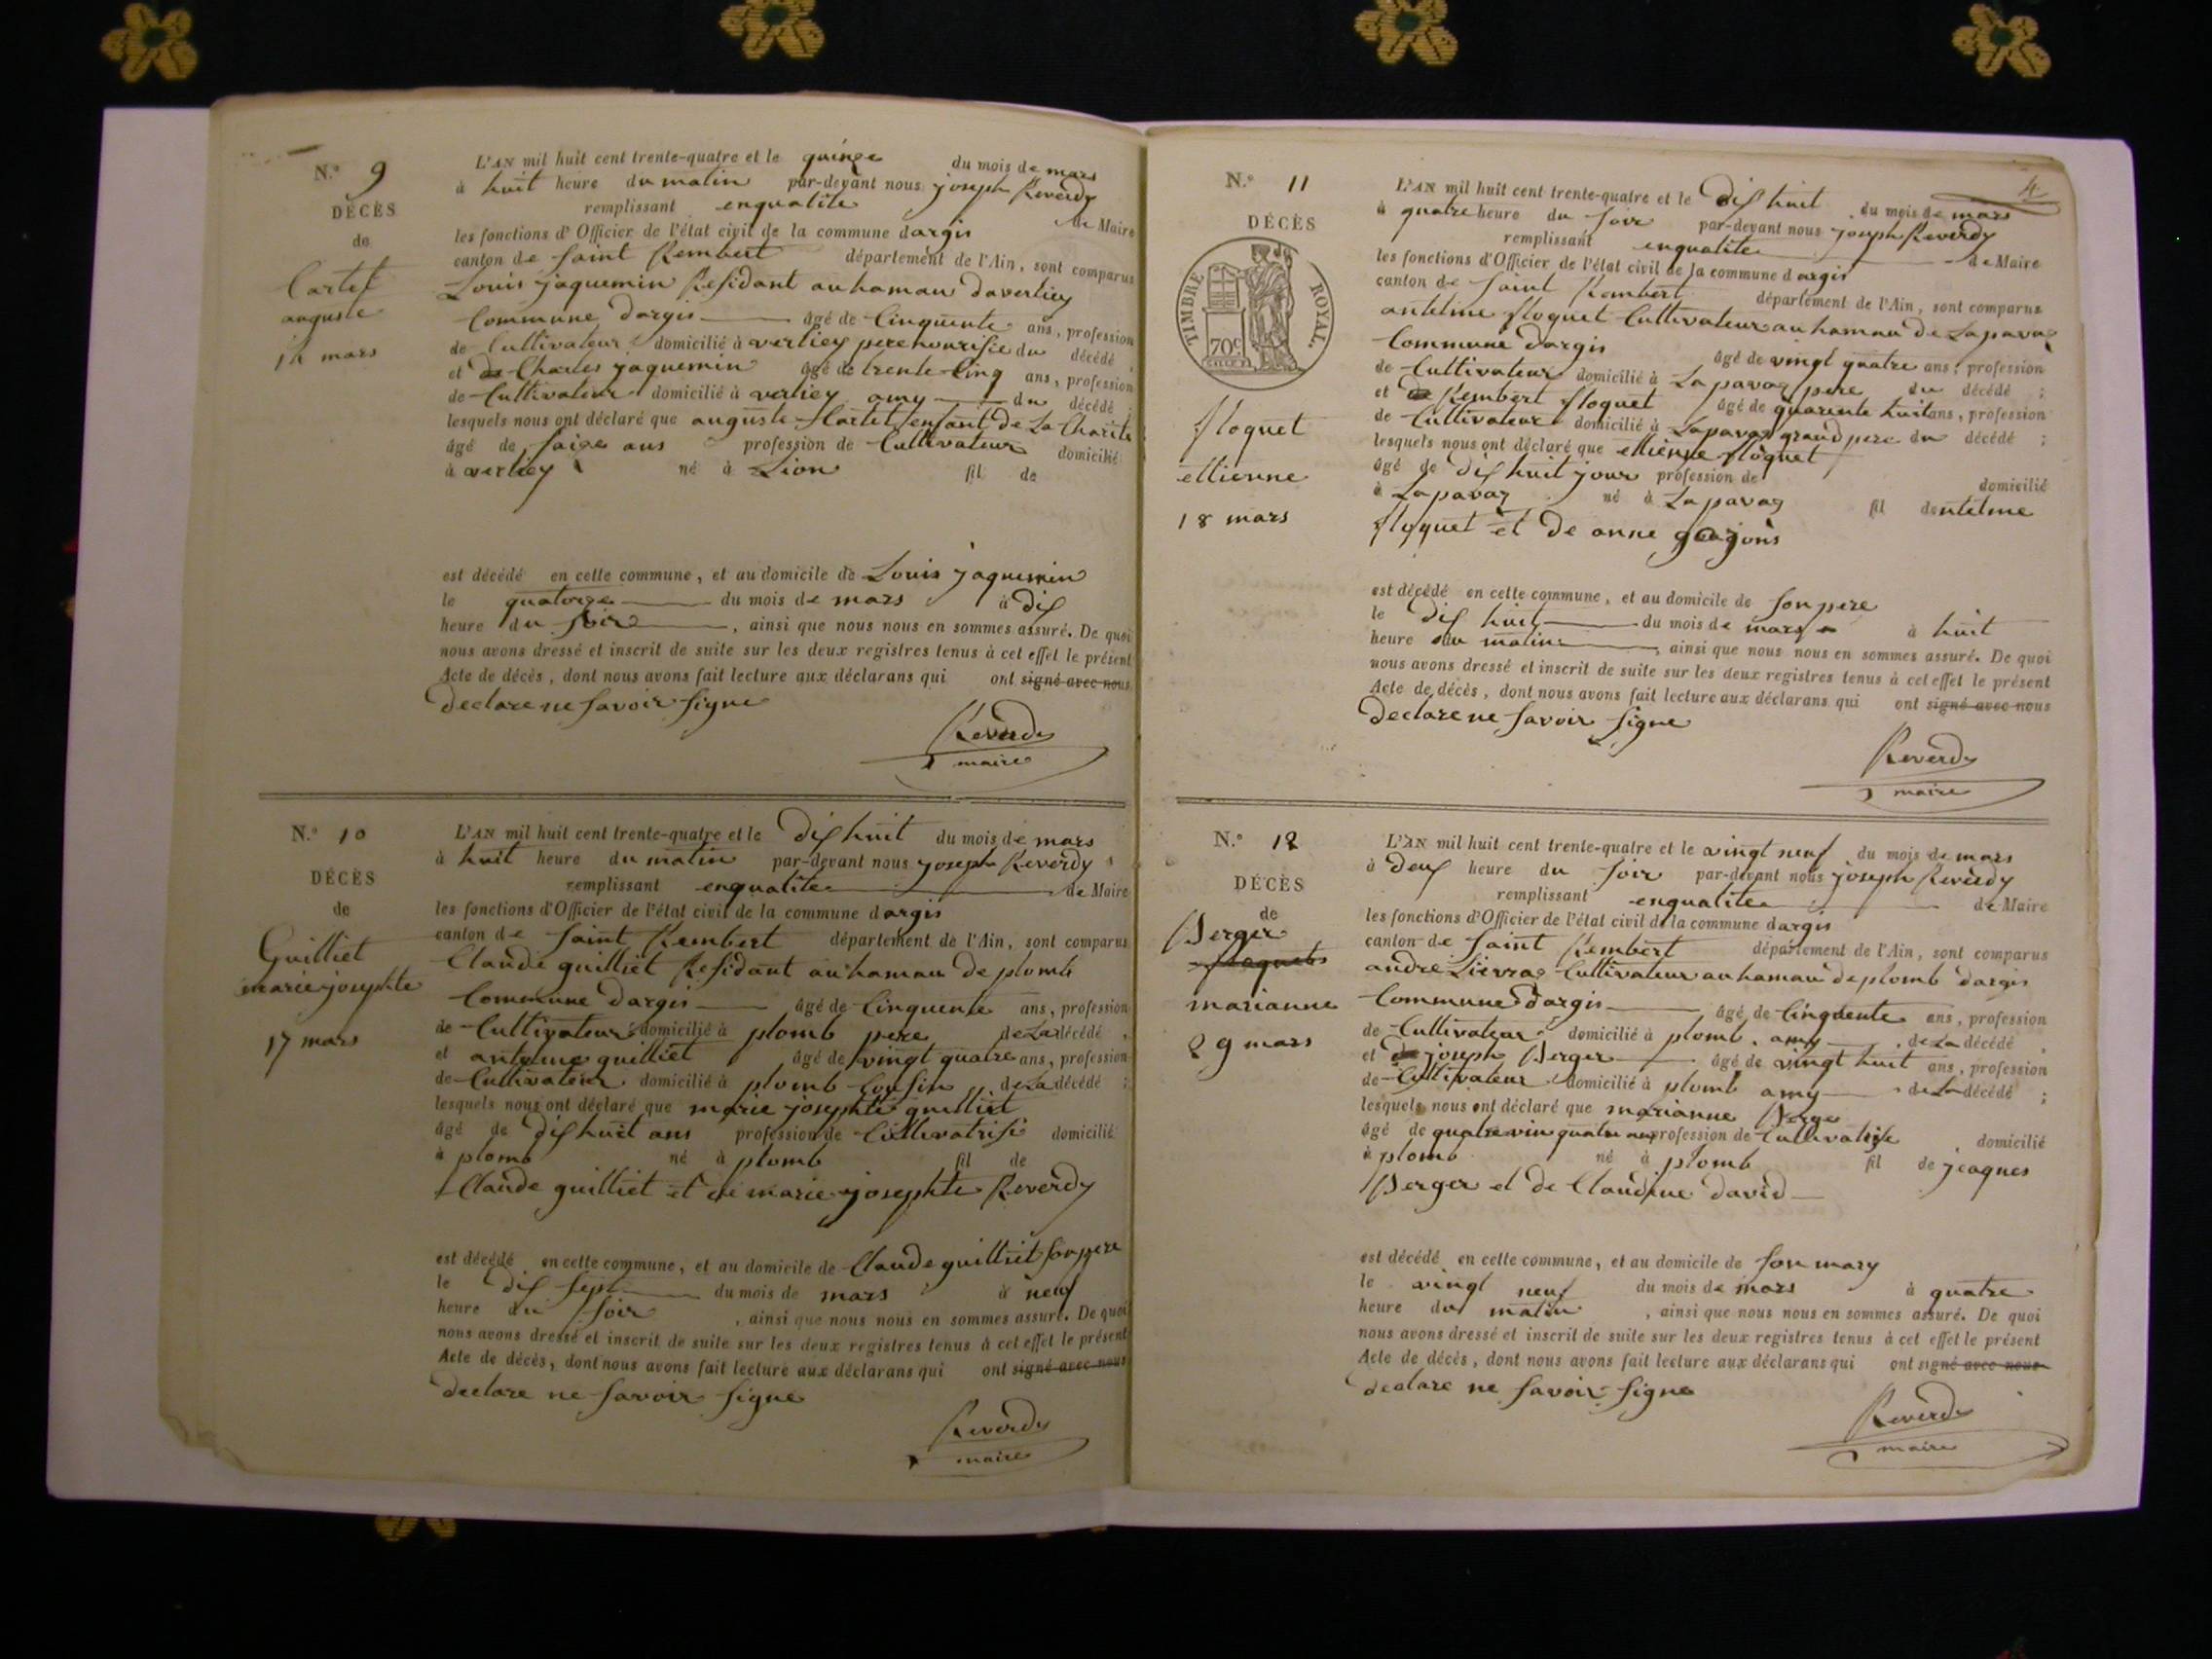 N.° 9
DÉCÈS
de
Cartet
auguste
14 mars
L'AN mil huit cent trente-quatre et le quinze du mois de mars
à huit heure du matin par-devant nous joseph Reverdy
remplissant enqualite de Maire
les fonctions d'Officier de l'état civil de la commune dargis
canton de Saint Rembert département de l'Ain, sont comparus
Louis jaquemin Residant auhamau daverliey
Commune dargis âgé de Cinquente ans, profession
de Cultivateur domicilié à verliey pere nourisie du décédé,
et de Charles jaquemin âgé de trente Cinq ans, profession
de Cultivateur domicilié à verliey amy du décédé;
lesquels nous ont déclaré que auguste Cartet enfant de La Charite
âgé de saize ans profession de Cultivateur domicilié
à verliey né à Lion fil de
est décédé en cette commune, et au domicile de Louis jaquemin
le quatorze du mois de mars à dis
heure du soir, ainsi que nous nous en sommes assuré. De quoi
nous avons dressé et inscrit de suite sur les deux registres tenus à cet effet le présent
Acte de décès, dont nous avons fait lecture aux déclarans qui ont signé avec nous
declare ne savoir signe
Reverdy
maire
N.° 10
DÉCÈS
de
Guilliet
marie josephte
17 mars
L'AN mil huit cent trente-quatre et le dishuit du mois de mars
à huit heure du matin par-devant nous joseph Reverdy
remplissant enqualite de Maire
les fonctions d'Officier de l'état civil de la commune dargis
canton de Saint Rembert département de l'Ain, sont comparus
Claude guilliet Residant auhamau de plomb
Commune dargis âgé de Cinquente ans, profession
de Cultivateur domicilié à plomb pere de La décédé,
et antelme guilliet âgé de vingt quatre ans, profession
de Cultivateur domicilié à plomb Cousin de La décédé;
lesquels nous ont déclaré que marie josephte guilliet
âgé de dishuit ans profession de Cultivatrise domicilié
à plomb né à plomb fil de
Claude guilliet et de marie josephte Reverdy
est décédé en cette commune, et au domicile de Claude guilliet son pere
le dis sept du mois de mars à neuf
heure du soir, ainsi que nous nous en sommes assuré. De quoi
nous avons dressé et inscrit de suite sur les deux registres tenus à cet effet le présent
Acte de décès, dont nous avons fait lecture aux déclarans qui ont signé avec nous
declare ne savoir signe
Reverdy
maire
4
N.° 11
DÉCÈS
TIMBRE ROYAL.
70c
floquet
ettienne
18 mars
L'AN mil huit cent trente-quatre et le dishuit du mois de mars
à quatre heure du soir par-devant nous joseph Reverdy
remplissant enqualite de Maire
les fonctions d'Officier de l'état civil de la commune dargis
canton de Saint Rembert département de l'Ain, sont comparus
antelme floquet Cultivateur au hamau de Lapavaz
Commune dargis âgé de vingt quatre ans, profession
de Cultivateur domicilié à Lapavaz pere du décédé;
et de Rembert floquet âgé de quarente huit ans, profession
de Cultivateur domicilié à Lapavaz grand pere du décédé;
lesquels nous ont déclaré que ettienne floquet
âgé de dis huit jour profession de domicilié
à Lapavaz né à Lapavaz fil dantelme
floquet et de anne
est décédé en cette commune, et au domicile de son pere
le dis huit du mois de mars à huit
heure du matin, ainsi que nous nous en sommes assuré. De quoi
nous avons dressé et inscrit de suite sur les deux registres tenus à cet effet le présent
Acte de décès, dont nous avons fait lecture aux déclarans qui ont signé avec nous
declare ne savoir signe
Reverdy
maire
N.° 12
DÉCÈS
de
Berger
floquet
marianne
29 mars
L'AN mil huit cent trente-quatre et le vingt neuf du mois de mars
à deus heure du soir par-devant nous joseph Reverdy
remplissant enqualite de Maire
les fonctions d'Officier de l'état civil de la commune dargis
canton de Saint Rembert département de l'Ain, sont comparus
andre Cultivateur au hamau de plomb dargis
Commune dargis âgé de Cinquente ans, profession
de Cultivateur domicilié à plomb amy de La décédé,
et de joseph Berger âgé de vingt huit ans, profession
de Cultivateur domicilié à plomb amy de La décédé;
lesquels nous ont déclaré que marianne Berge
âgé de quatre vin quatre ans profession de Cultivatrise domicilié
à plomb né à plomb fil de jeaques
Berger et de Claudine david
est décédé en cette commune, et au domicile de son mary
le vingt neuf du mois de mars à quatre
heure du matin, ainsi que nous nous en sommes assuré. De quoi
nous avons dressé et inscrit de suite sur les deux registres tenus à cet effet le présent
Acte de décès, dont nous avons fait lecture aux déclarans qui ont signé avec nous
declare ne savoir signe
Reverdy
maire